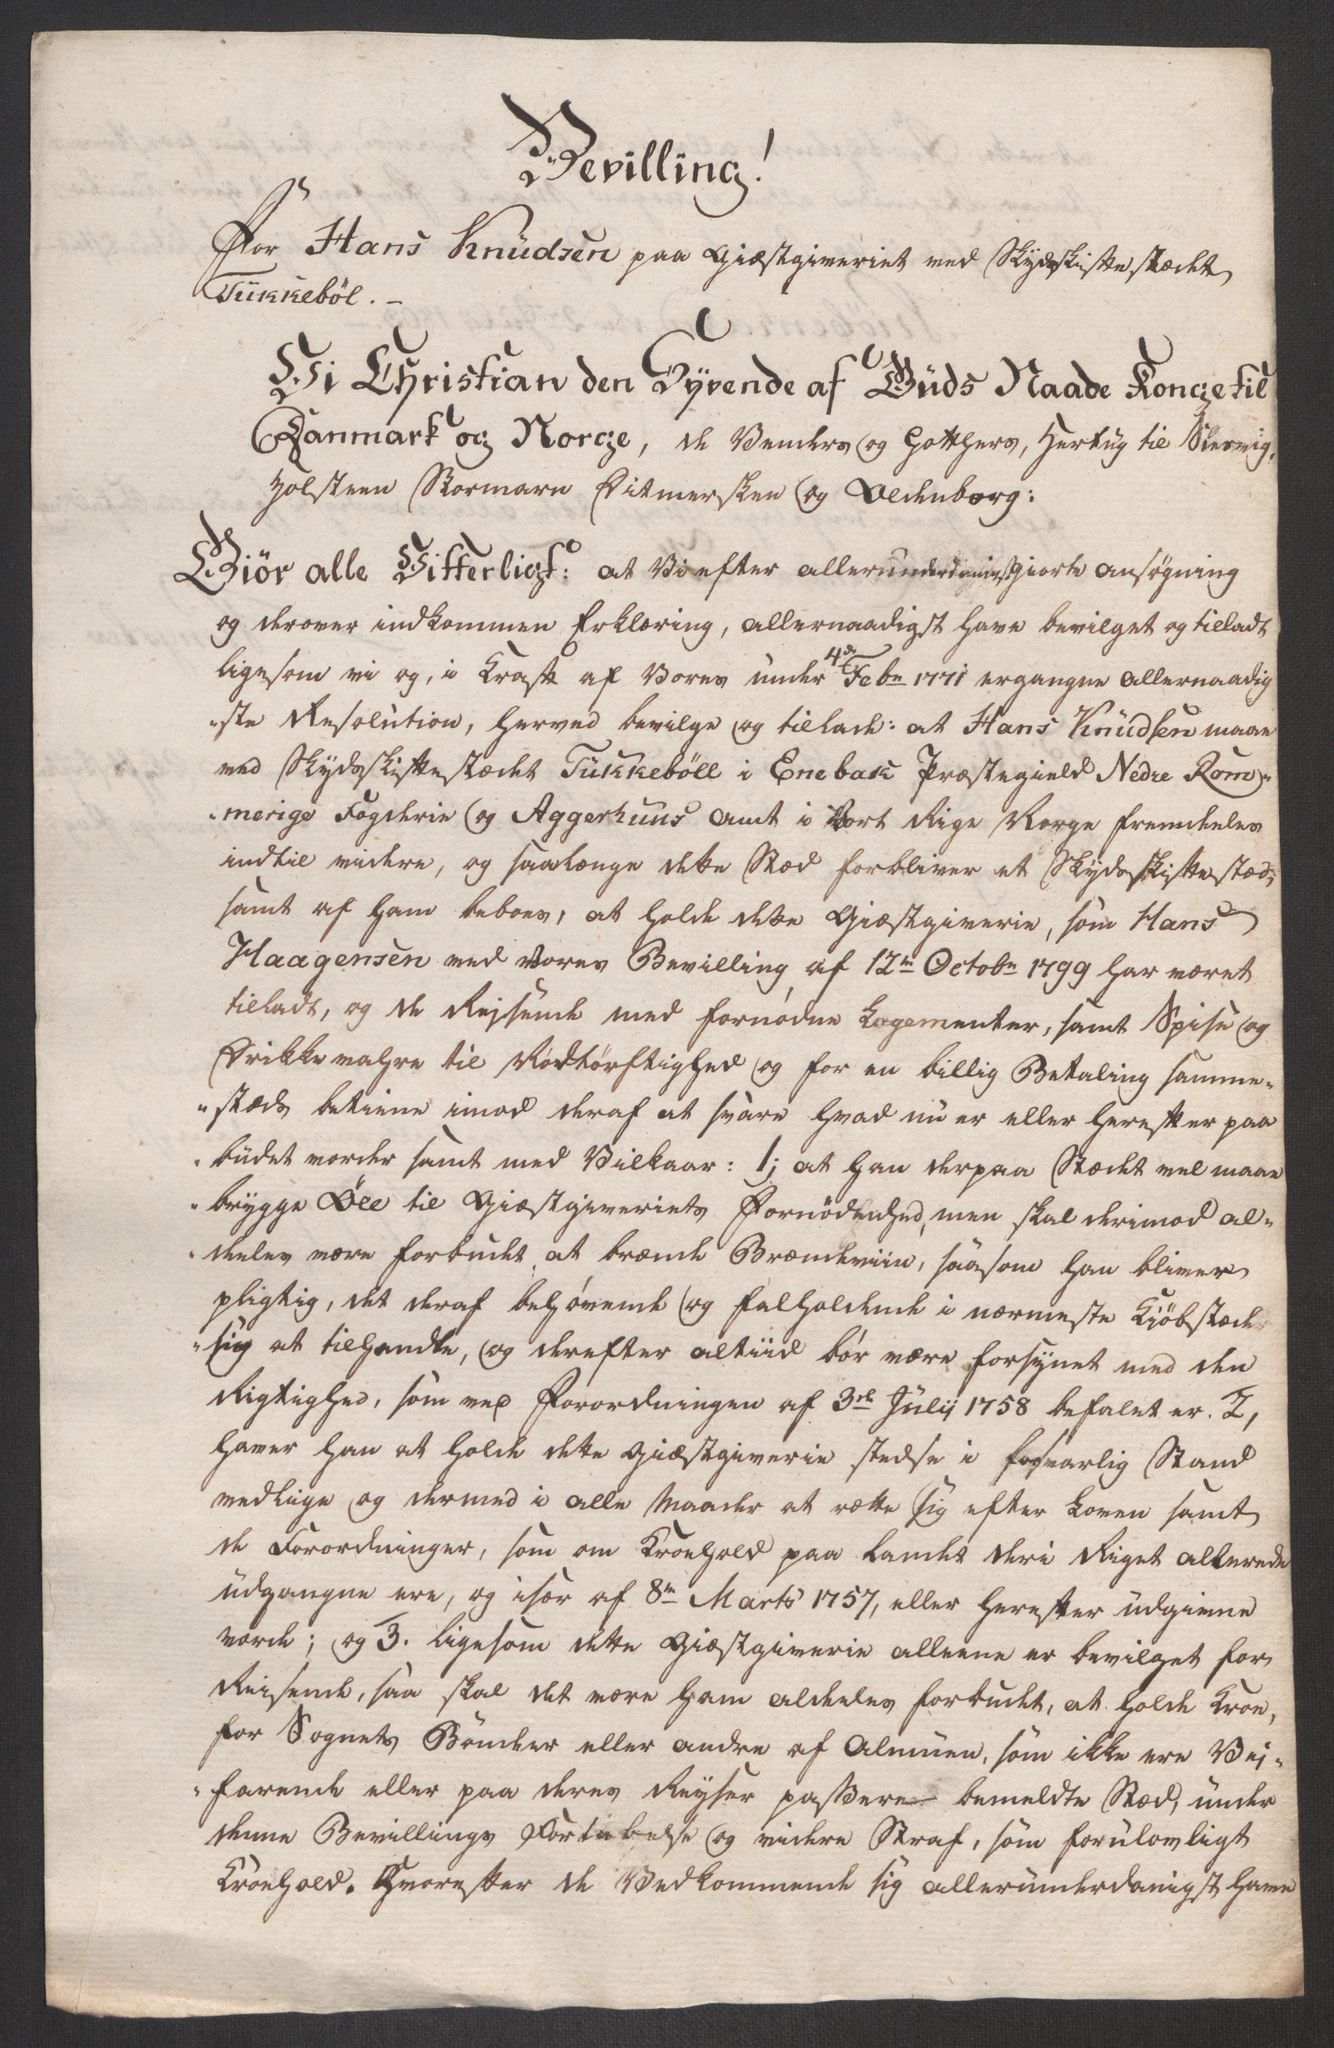 Bevilling!
For Hans Knüdsen paa Giæstgiveriet ved Skydsskiftestædet
Tükkeböl. –
Vi Christian den Syvende af Güds Naade Konge til
Danmark og Norge, de Venders og Gothers, Hertüg til Slesvig,
Holsteen Stormarn Ditmersken og Oldenborg:
Giör alle Vitterligt: at Vi efter allerunderdanigst giorte ansøgning
og derover indkommen Erklæring, allernaadigst have bevilget og tilladt
ligesom vi og, i Kraft af Vores under 4de Febr 1771 ergangne allernaadig
"ste Resolution, herved bevilge og tillade: at Hans Knüdsen maae
ved Skydsskiftestædet Tükkeböll i Enebak Præstegield Nedre Rom-
"merige Fogderie og Aggerhuus Amt i Vort Rige Norge fremdeles
indtil videre, og saalænge dette Stæd forbliver et Skydsskiftestæd,
samt af ham beboes, at holde dette Giæstgiverie, som Hans
Haagensen ved Vores Bevilling af 12te Octobr 1799 har været
tilladt, og de Rejsende med fornødne Logementer, samt Spise og
Drikkevahre til Nødtørftighed og for en billig Betaling samme-
"stæds betiene imod deraf at svare hvad nu er eller herefter paa
"büdet vorder samt med Vilkaar: 1; at han derpaa Stædet vel maae
"brygge Öll til Giæstgiveriets Fornödenhed, men skal derimod al-
"deles være forbudet at brænde Brændeviin, saasom han bliver
pligtig, det deraf behøvende og falholdende i nærmeste Kiöbstæd
"sig at tilhandle, og derefter altiid bør være forsynet med den
Rigtighed, som ved Forordningen af 3die Julij 1758 befalet er. 2,
haver han at holde dette Giæstgiverie stedse i forsvarlig Stand
vedlige og dermed i alle Maader at rette sig efter Loven samt
de Forordninger, som om Kroehold paa Landet deri Riget allerede
üdgangne ere, og især af 8de Marts 1757, eller herefter üdgivne
vorde; og 3. ligesom dette Giæstgiverie alleene er bevilget for
Reisende, saa skal det være ham aldeles forbudet, at holde Kroe,
for Sognets Bönder eller andre af Almuen, som ikke ere Vej-
"farende eller paa deres Reyser passere bemeldte Stæd, under
denne Bevillings Fortabelse og videre Straf, som for ulovligt
Kroehold. Hvorefter de Vedkommende sig allerunderdanigst have